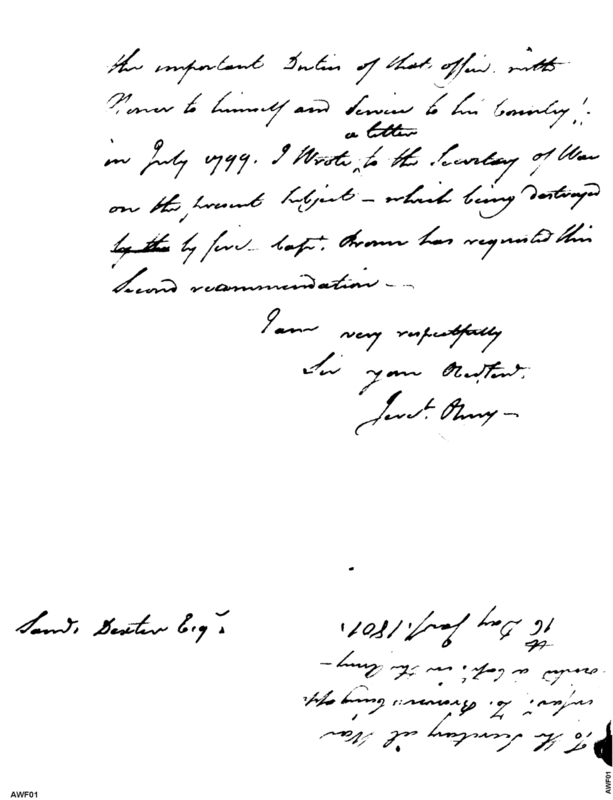 the important Duties of that office with
Honor to himself and Service to his Country!
in July 1799. I Wrote a letter to the Secretary of War
on the present subject – which being destroyed
by the by fire – Capt. Brown has requested this
Second recommendation –
I am very respectfully
Sir your Obed. Servt.
Saml. Dexter Esqr.
To the Secretary at War
in favr. Z. Brown's being app
ointed a Capt. in the Army –
16 Day Jany. 1801.
AWF01
AWF01